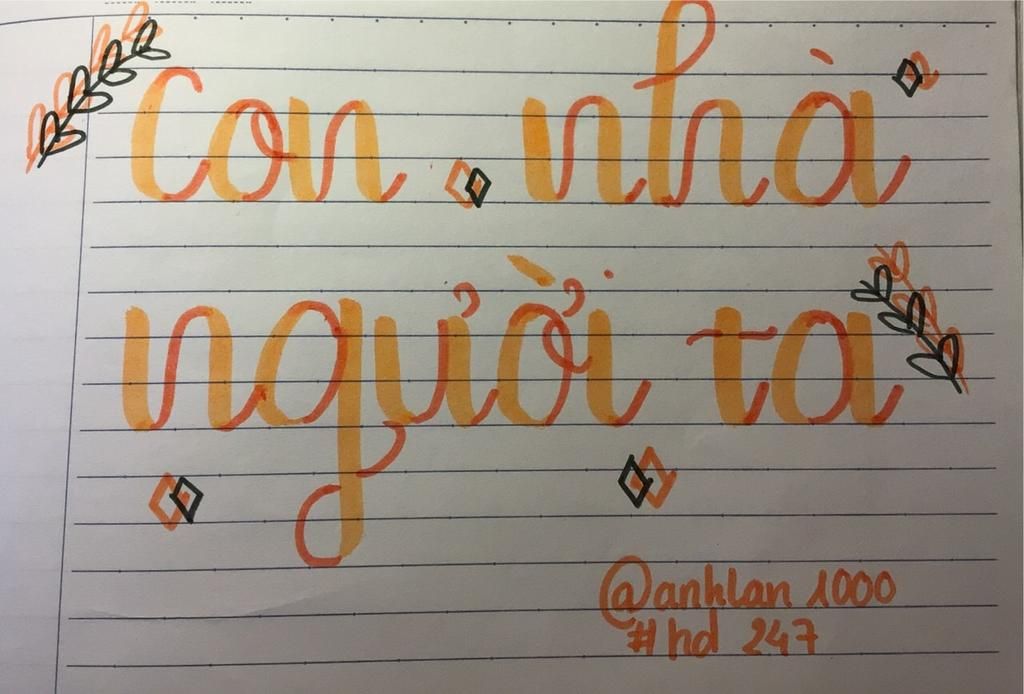 con nhà
người ta
@anhlan 1000
#hd 247